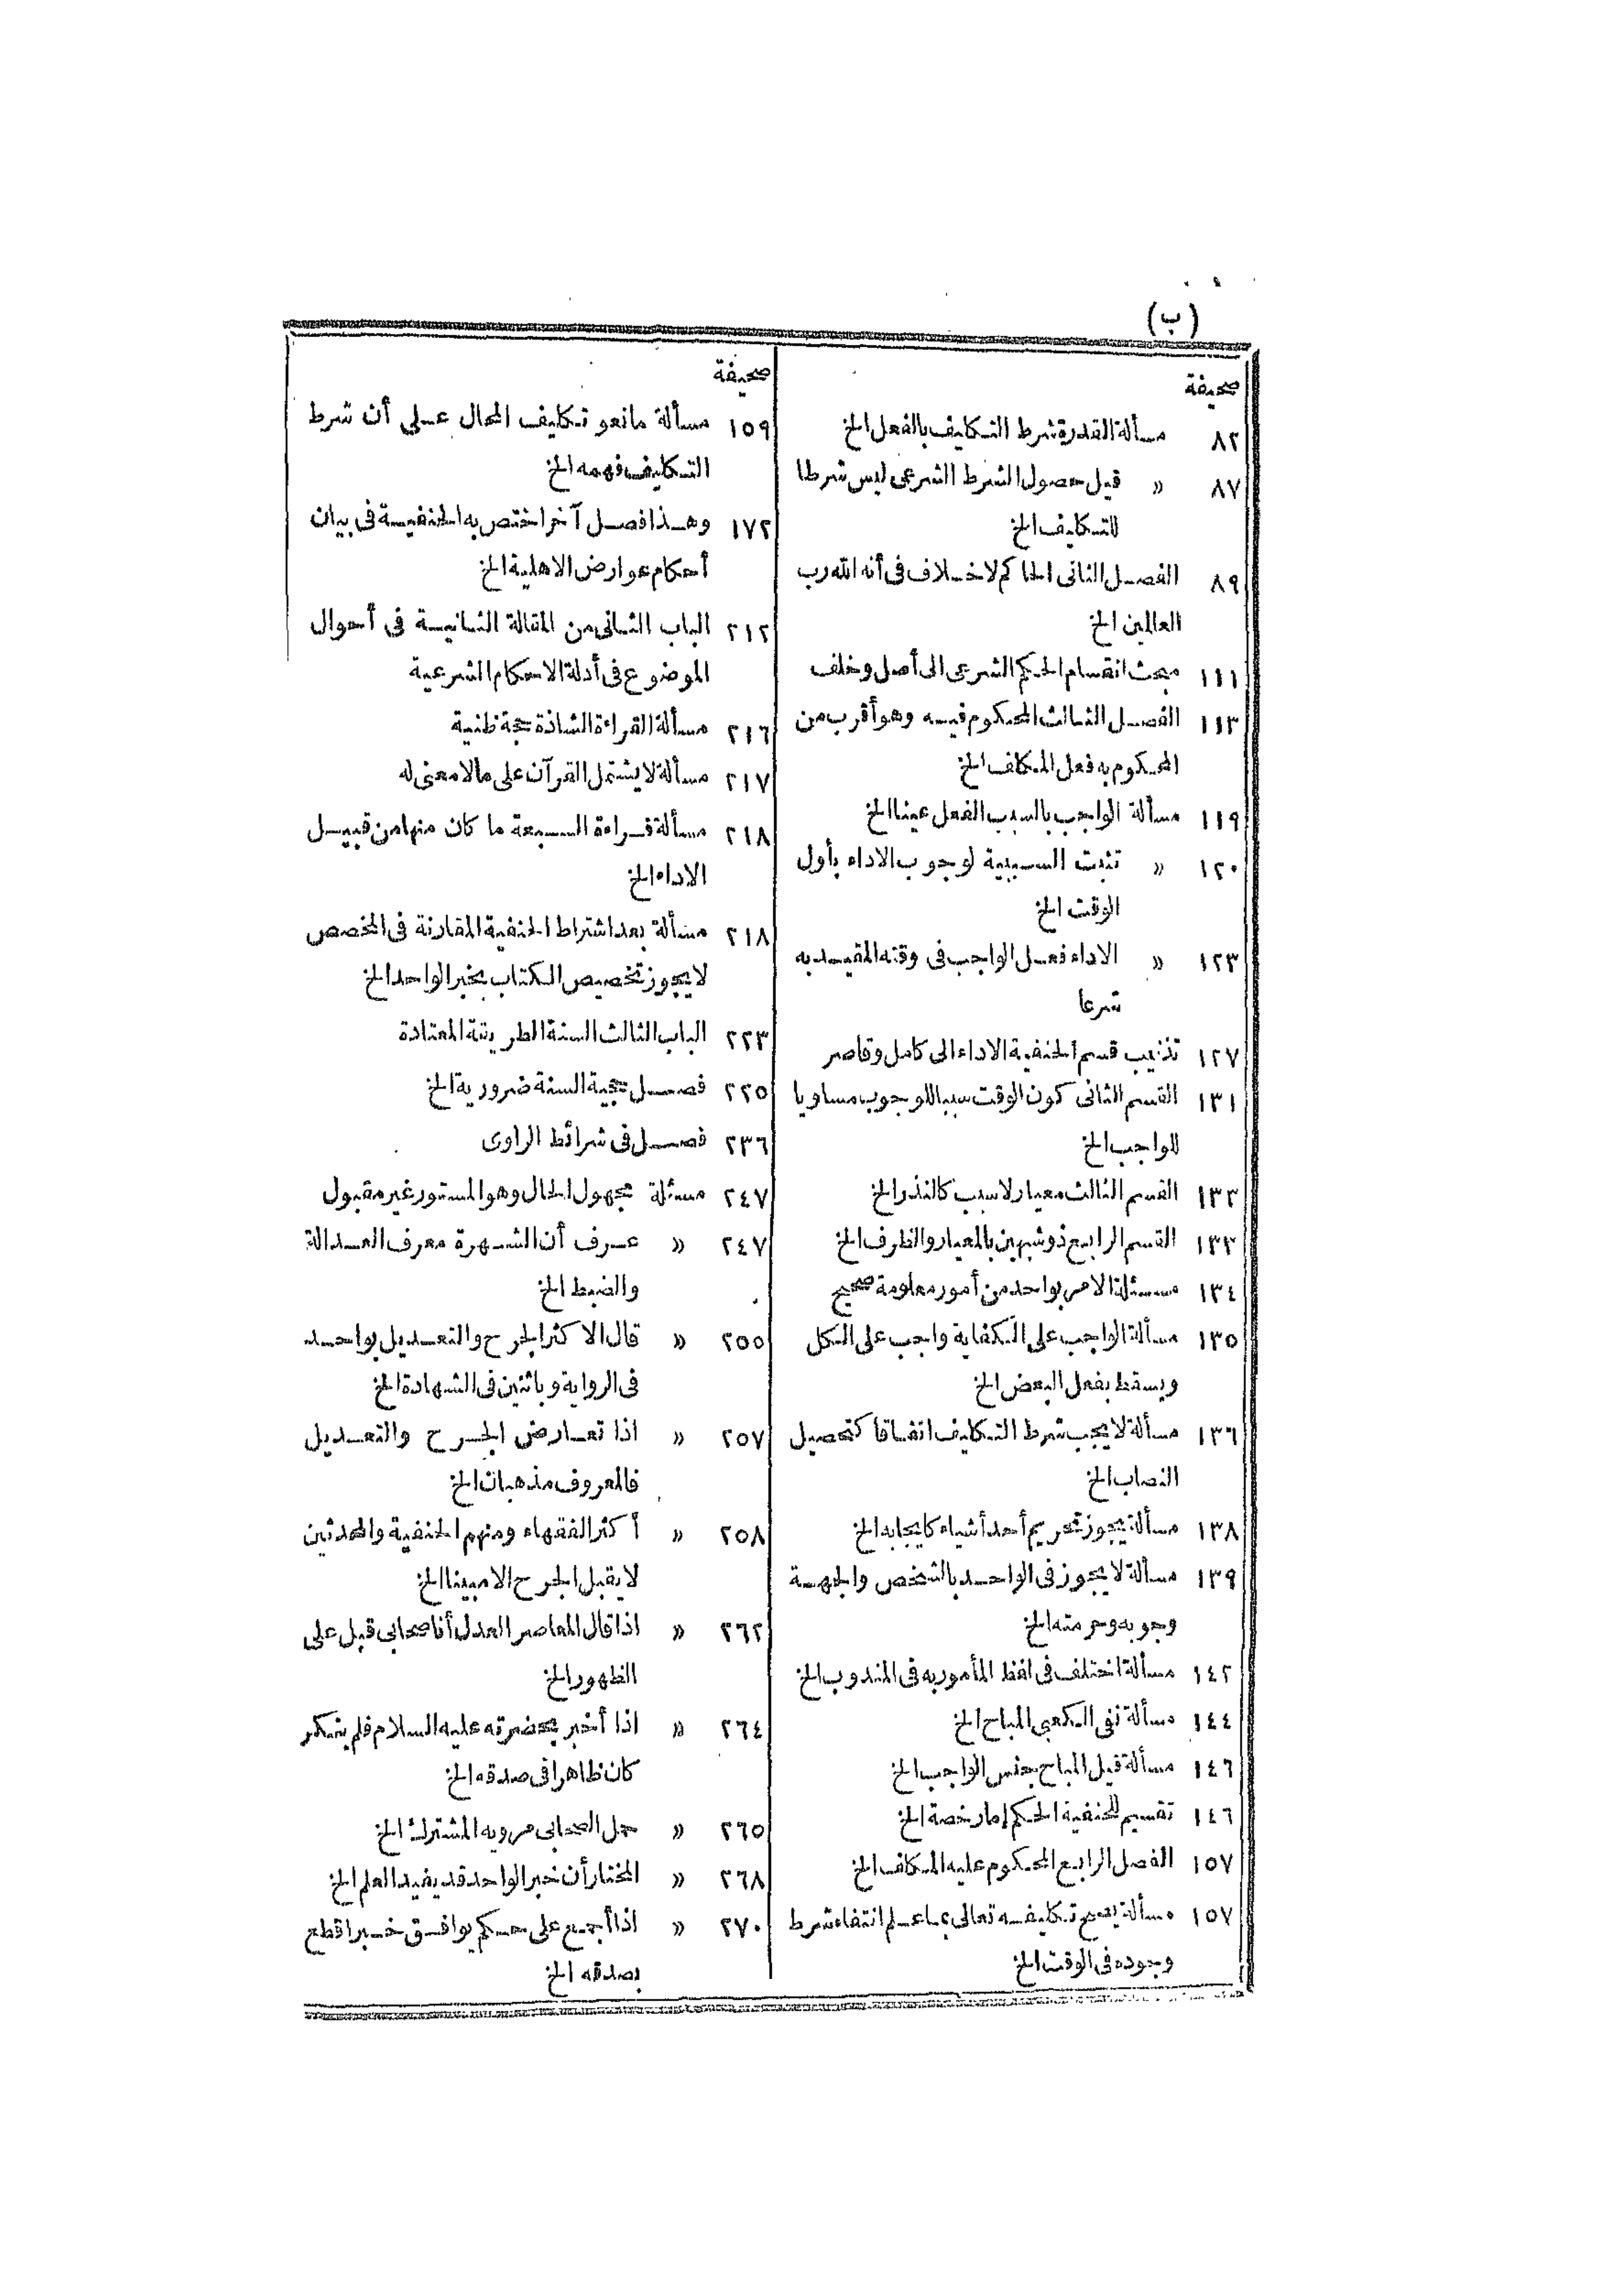 (ب)
صحيفة
٨٢ مسألة القدرة شرط التكليف بالفعل الخ
٨٧ » قيل حصول الشرط الشرعى ليس شرطا
للتكليف الخ
٨٩ الفصل الثانى الحاكم لا خلاف فى أنه الله رب
العالمين الخ
١١١ مبحث انقسام الحكم الشرعى الى أصل وخلف
١١٣ الفصل الثالث المحكوم فيه وهو أقرب من
المحكوم به فعل المكلف الخ
١١٩ مسألة الواجب بالسبب الفعل عينا الخ
١٢٠ » تثبت السببية لوجوب الاداء بأول
الوقت الخ
١٢٣ » الاداء فعل الواجب فى وقته المقيد به
شرعا
١٢٧ تذنيب قسم الحنفية الاداء الى كامل وقاصر
١٣١ القسم الثانى كون الوقت سببا للوجوب مساويا
للواجب الخ
١٣٢ القسم الثالث معيار لا سبب كالنذر الخ
١٣٣ القسم الرابع ذو شبهين بالمعيار والظرف الخ
١٣٤ مسئلة الامر بواحد من أمور معلومة صحيح
١٣٥ مسألة الواجب على الكفاية واجب على الكل
ويسقط بفعل البعض الخ
١٣٦ مسألة لا يجب شرط التكليف اتفاقا كتحصيل
النصاب الخ
١٣٨ مسألة يجوز تحريم أحد أشياء كايجابه الخ
١٣٩ مسألة لا يجوز فى الواحد بالشخص والجهة
وجوبه وحرمته الخ
١٤٢ مسألة اختلف فى لفظ المأمور به فى المندوب الخ
١٤٤ مسألة نفى الكعبي المباح الخ
١٤٦ مسألة قيل المباح جنس الواجب الخ
١٤٦ تقسيم للحنفية الحكم إما رخصة الخ
١٥٧ الفصل الرابع المحكوم عليه المكلف الخ
١٥٧ مسألة يصح تكليفه تعالى بما علم انتفاء شرط
وجوده فى الوقت الخ
صحيفة
١٥٩ مسألة مانعو تكليف المحال على أن شرط
التكليف فهمه الخ
١٧٢ وهذا فصل آخر اختص به الحنفية فى بيان
أحكام عوارض الاهلية الخ
٢١٢ الباب الثانى من المقالة الثانية فى أحوال
الموضوع فى أدلة الاحكام الشرعية
٢١٦ مسألة القراءة الشاذة حجة ظنية
٢١٧ مسألة لا يشتمل القرآن على ما لا معنى له
٢١٨ مسألة قراءة السبعة ما كان منها من قبيل
الاداء الخ
٢١٨ مسألة بعد اشتراط الحنفية المقارنة فى المخصص
لا يجوز تخصيص الكتاب بخبر الواحد الخ
٢٢٣ الباب الثالث السنة الطريقة المعتادة
٢٢٥ فصل حجية السنة ضرورية الخ
٢٣٦ فصل فى شرائط الراوى
٢٤٧ مسئلة مجهول الحال وهو المستور غير مقبول
٢٤٧ » عرف أن الشهرة معرف العدالة
والضبط الخ
٢٥٥ » قال الاكثر الجرح والتعديل بواحد
فى الرواية وباثنين فى الشهادة الخ
٢٥٧ » اذا تعارض الجرح والتعديل
فالمعروف مذهبان الخ
٢٥٨ » أكثر الفقهاء ومنهم الحنفية والمحدثين
لا يقبل الجرح الا مبينا الخ
٢٦٢ » اذا قال المعاصر العدل أنا صحابى قبل على
الظهور الخ
٢٦٤ » اذا أخبر بحضرته عليه السلام فلم ينكر
كان ظاهرا فى صدقه الخ
٢٦٥ » حمل الصحابى مرويه المشترك الخ
٢٦٨ » المختار أن خبر الواحد قد يفيد العلم الخ
٢٧٠ » اذا أجمع على حكم يوافق خبرا قطع
بصدقه الخ